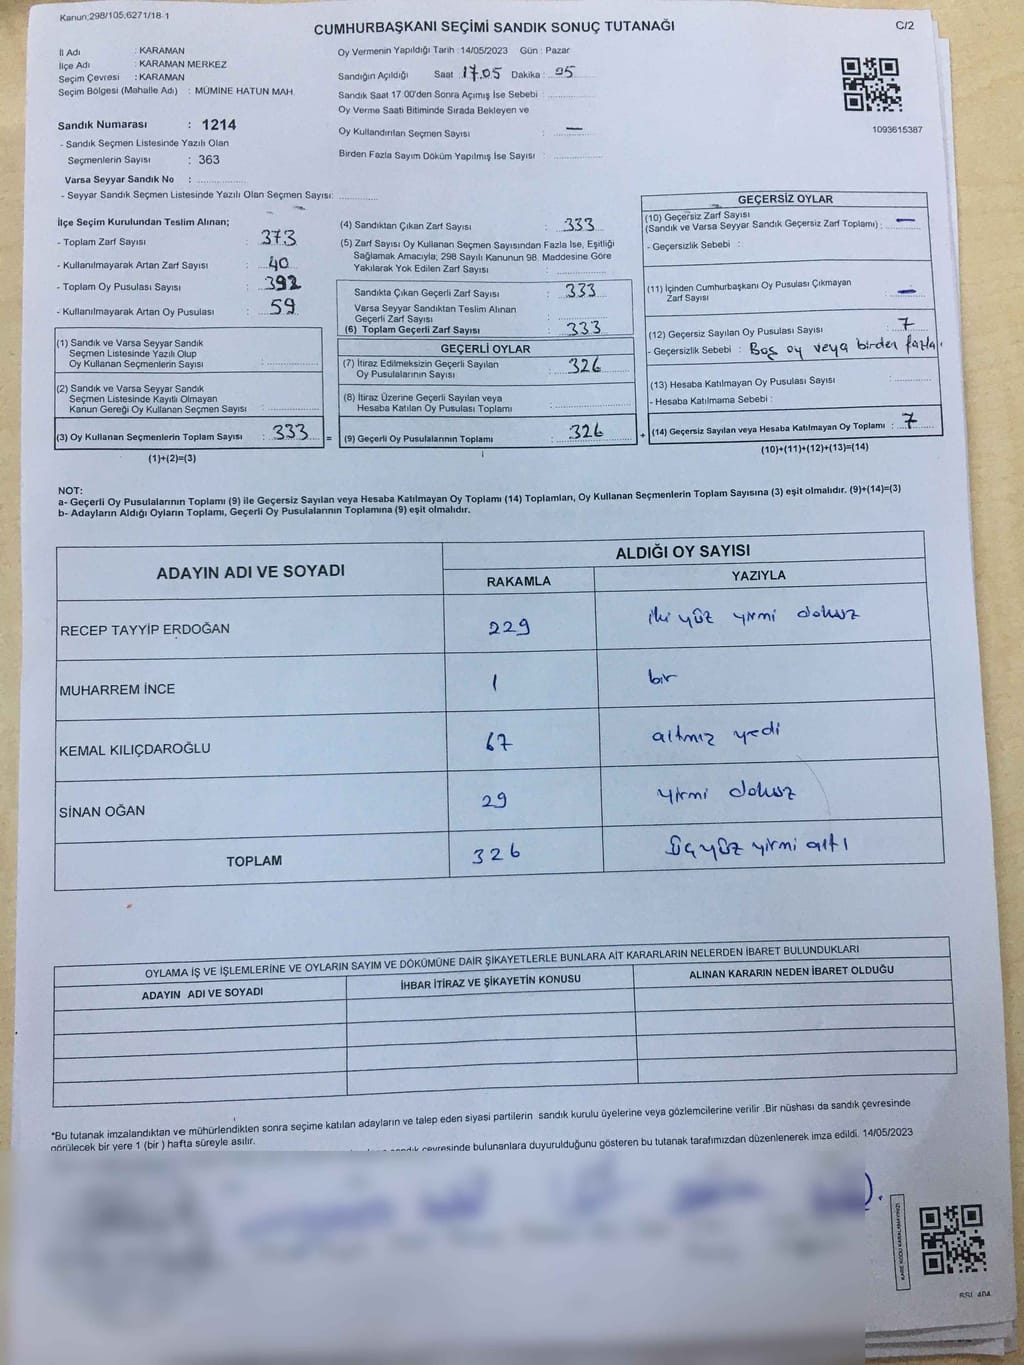 Kanun,298/105,6271/18-1
CUMHURBAŞKANI SEÇİMİ SANDIK SONUÇ TUTANAĞI
C/2
İl Adı : KARAMAN
İlçe Adı : KARAMAN MERKEZ
Seçim Çevresi : KARAMAN
Seçim Bölgesi (Mahalle Adı) : MÜMİNE HATUN MAH.
Sandık Numarası : 1214
- Sandık Seçmen Listesinde Yazılı Olan
Seçmenlerin Sayısı : 363
Varsa Seyyar Sandık No :
- Seyyar Sandık Seçmen Listesinde Yazılı Olan Seçmen Sayısı:
Oy Vermenin Yapıldığı Tarih : 14/05/2023 Gün : Pazar
Sandığın Açıldığı Saat : 17.05 Dakika : 05
Sandık Saat 17.00'den Sonra Açımış İse Sebebi :
Oy Verme Saati Bitiminde Sırada Bekleyen ve
Oy Kullandırılan Seçmen Sayısı : —
Birden Fazla Sayım Döküm Yapılmış İse Sayısı :
1093615387
İlçe Seçim Kurulundan Teslim Alınan;
- Toplam Zarf Sayısı : 373
- Kullanılmayarak Artan Zarf Sayısı : 40
- Toplam Oy Pusulası Sayısı : 392
- Kullanılmayarak Artan Oy Pusulası : 59
(1) Sandık ve Varsa Seyyar Sandık
Seçmen Listesinde Yazılı Olup
Oy Kullanan Seçmenlerin Sayısı :
(2) Sandık ve Varsa Seyyar Sandık
Seçmen Listesinde Kayıtlı Olmayan
Kanun Gereği Oy Kullanan Seçmen Sayısı :
(3) Oy Kullanan Seçmenlerin Toplam Sayısı : 333 =
(1)+(2)=(3)
(4) Sandıktan Çıkan Zarf Sayısı : 333
(5) Zarf Sayısı Oy Kullanan Seçmen Sayısından Fazla İse, Eşitliği
Sağlamak Amacıyla; 298 Sayılı Kanunun 98. Maddesine Göre
Yakılarak Yok Edilen Zarf Sayısı :
Sandıkta Çıkan Geçerli Zarf Sayısı : 333
Varsa Seyyar Sandıktan Teslim Alınan
Geçerli Zarf Sayısı :
(6) Toplam Geçerli Zarf Sayısı : 333
GEÇERLİ OYLAR
(7) İtiraz Edilmeksizin Geçerli Sayılan
Oy Pusulalarının Sayısı : 326
(8) İtiraz Üzerine Geçerli Sayılan veya
Hesaba Katılan Oy Pusulası Toplamı :
(9) Geçerli Oy Pusulalarının Toplamı : 326 +
GEÇERSİZ OYLAR
(10) Geçersiz Zarf Sayısı
(Sandık ve Varsa Seyyar Sandık Geçersiz Zarf Toplamı) : —
- Geçersizlik Sebebi :
(11) İçinden Cumhurbaşkanı Oy Pusulası Çıkmayan
Zarf Sayısı : —
(12) Geçersiz Sayılan Oy Pusulası Sayısı : 7
- Geçersizlik Sebebi : Boş oy veya birden fazla.
(13) Hesaba Katılmayan Oy Pusulası Sayısı :
- Hesaba Katılmama Sebebi :
(14) Geçersiz Sayılan veya Hesaba Katılmayan Oy Toplamı : 7
(10)+(11)+(12)+(13)=(14)
NOT:
a- Geçerli Oy Pusulalarının Toplamı (9) ile Geçersiz Sayılan veya Hesaba Katılmayan Oy Toplamı (14) Toplamları, Oy Kullanan Seçmenlerin Toplam Sayısına (3) eşit olmalıdır. (9)+(14)=(3)
b- Adayların Aldığı Oyların Toplamı, Geçerli Oy Pusulalarının Toplamına (9) eşit olmalıdır.
ADAYIN ADI VE SOYADI
ALDIĞI OY SAYISI
RAKAMLA YAZIYLA
RECEP TAYYİP ERDOĞAN 229 iki yüz yirmi dokuz
MUHARREM İNCE 1 bir
KEMAL KILIÇDAROĞLU 67 altmız yedi
SİNAN OĞAN 29 yirmi dokuz
TOPLAM 326 Üçyüz yirmi altı
OYLAMA İŞ VE İŞLEMLERİNE VE OYLARIN SAYIM VE DÖKÜMÜNE DAİR ŞİKAYETLERLE BUNLARA AİT KARARLARIN NELERDEN İBARET BULUNDUKLARI
ADAYIN ADI VE SOYADI İHBAR İTİRAZ VE ŞİKAYETİN KONUSU ALINAN KARARIN NEDEN İBARET OLDUĞU
*Bu tutanak imzalandıktan ve mühürlendikten sonra seçime katılan adayların ve talep eden siyasi partilerin sandık kurulu üyelerine veya gözlemcilerine verilir .Bir nüshası da sandık çevresinde
görülecek bir yere 1 (bir ) hafta süreyle asılır.
sandık çevresinde bulunanlara duyurulduğunu gösteren bu tutanak tarafımızdan düzenlenerek imza edildi. 14/05/2023
KARE KODU KARALAMAYINIZ!